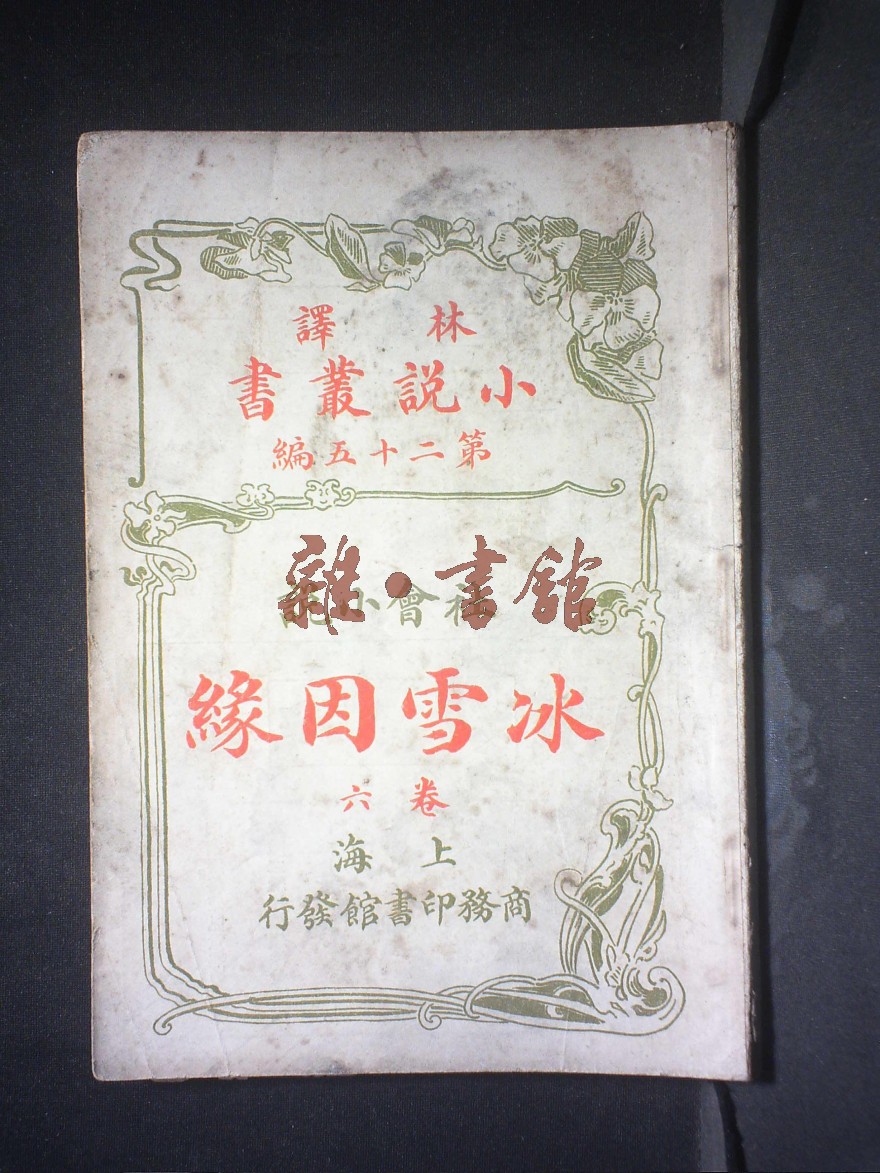 林譯
小說叢書
第二十五編
雜·書館
社會小說
冰雪因緣
卷六
上海
商務印書館發行